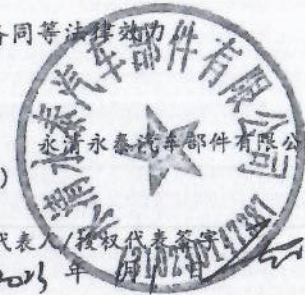 各同等法律效力。
永清永泰汽车部件有限公
)
代表人/授权代表签字
2023 年 月 日
永清永泰汽车部件有限公司